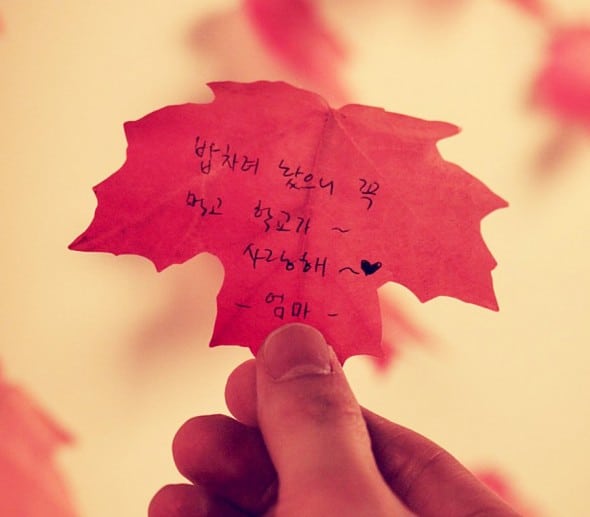 밥차려 놨으니 꼭
먹고 학교가 ~
사랑해 ~♥
- 엄마 -